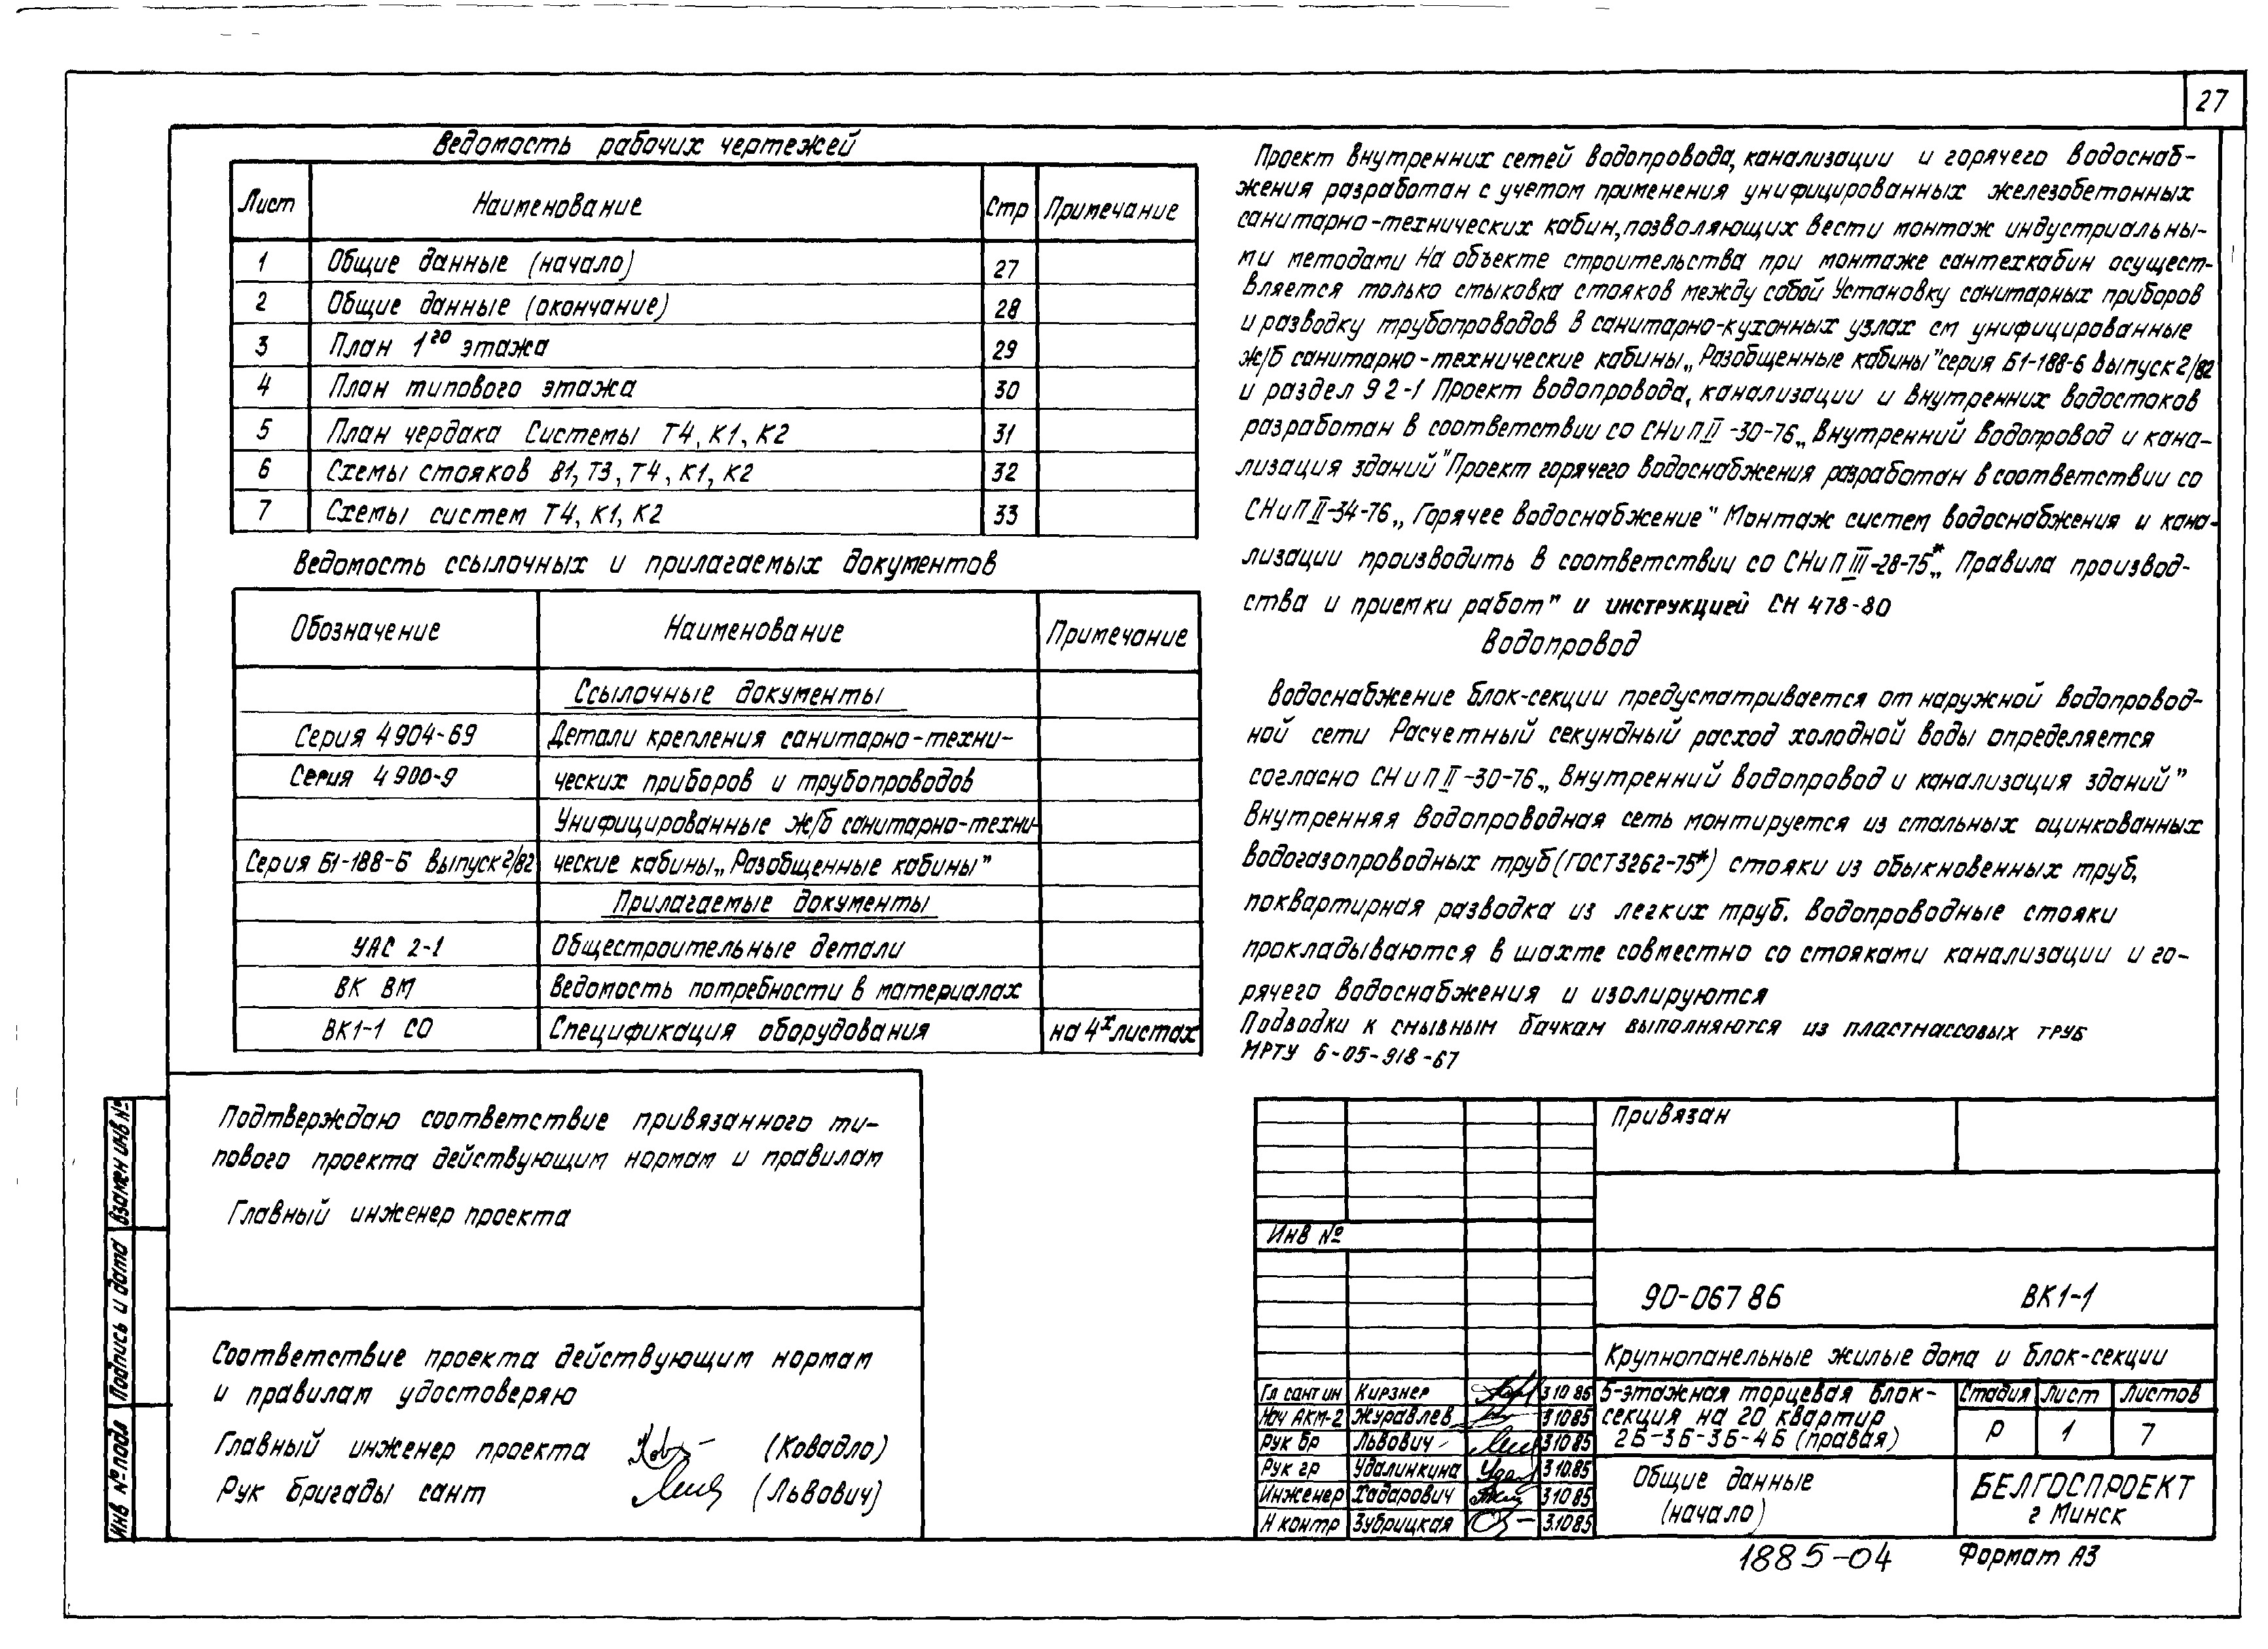 27
Ведомость рабочих чертежей
Лист Наименование Стр Примечание
1 Общие данные (начало) 27
2 Общие данные (окончание) 28
3 План 1го этажа 29
4 План типового этажа 30
5 План чердака Системы Т4, К1, К2 31
6 Схемы стояков В1, Т3, Т4, К1, К2 32
7 Схемы систем Т4, К1, К2 33
Ведомость ссылочных и прилагаемых документов
Обозначение Наименование Примечание
Ссылочные документы
Серия 4 904-69 Детали крепления санитарно-техни-
Серия 4 900-9 ческих приборов и трубопроводов
Унифицированные ж/б санитарно-техни-
Серия Б1-188-6 Выпуск 2/82 ческие кабины „Разобщенные кабины"
Прилагаемые документы
УАС 2-1 Общестроительные детали
ВК ВМ Ведомость потребности в материалах
ВК1-1 СО Спецификация оборудования на 4х листах
Подтверждаю соответствие привязанного ти-
пового проекта действующим нормам и правилам
Главный инженер проекта
Соответствие проекта действующим нормам
и правилам удостоверяю
Главный инженер проекта (Ковадло)
Рук бригады сант (Львович)
Взамен инв №
Подпись и дата
Инв № подл
Проект внутренних сетей водопровода, канализации и горячего водоснаб-
жения разработан с учетом применения унифицированных железобетонных
санитарно-технических кабин, позволяющих вести монтаж индустриальны-
ми методами На объекте строительства при монтаже сантехкабин осущест-
вляется только стыковка стояков между собой Установку санитарных приборов
и разводку трубопроводов в санитарно-кухонных узлах см унифицированные
ж/б санитарно-технические кабины „Разобщенные кабины" серия Б1-188-6 Выпуск 2/82
и раздел 9 2-1 Проект водопровода, канализации и внутренних водостоков
разработан в соответствии со СНиП II-30-76 „Внутренний водопровод и кана-
лизация зданий" Проект горячего водоснабжения разработан в соответствии со
СНиП II-34-76 „Горячее водоснабжение" Монтаж систем водоснабжения и кана-
лизации производить в соответствии со СНиП III-28-75* „Правила производ-
ства и приемки работ" и инструкцией СН 478-80
Водопровод
Водоснабжение блок-секции предусматривается от наружной водопровод-
ной сети Расчетный секундный расход холодной воды определяется
согласно СНиП II-30-76 „Внутренний водопровод и канализация зданий"
Внутренняя водопроводная сеть монтируется из стальных оцинкованных
водогазопроводных труб (ГОСТ 3262-75*) стояки из обыкновенных труб,
поквартирная разводка из легких труб. Водопроводные стояки
прокладываются в шахте совместно со стояками канализации и го-
рячего водоснабжения и изолируются
Подводки к смывным бачкам выполняются из пластмассовых труб
МРТУ 6-05-918-67
Привязан
Инв №
90-067 86 ВК1-1
Крупнопанельные жилые дома и блок-секции
Гл сант ин Кирзнер 3 10 85
Нач АКМ-2 Журавлев 3 10 85
Рук бр Львович 3 10 85
Рук гр Удалинкина 3 10.85
Инженер Хадарович 3 10 85
Н контр Зубрицкая 3.10 85
5-этажная торцевая блок-
секция на 20 квартир
2Б-3Б-3Б-4Б (правая)
Стадия Лист Листов
Р 1 7
Общие данные
(начало)
БЕЛГОСПРОЕКТ
г Минск
1885-04 Формат А3